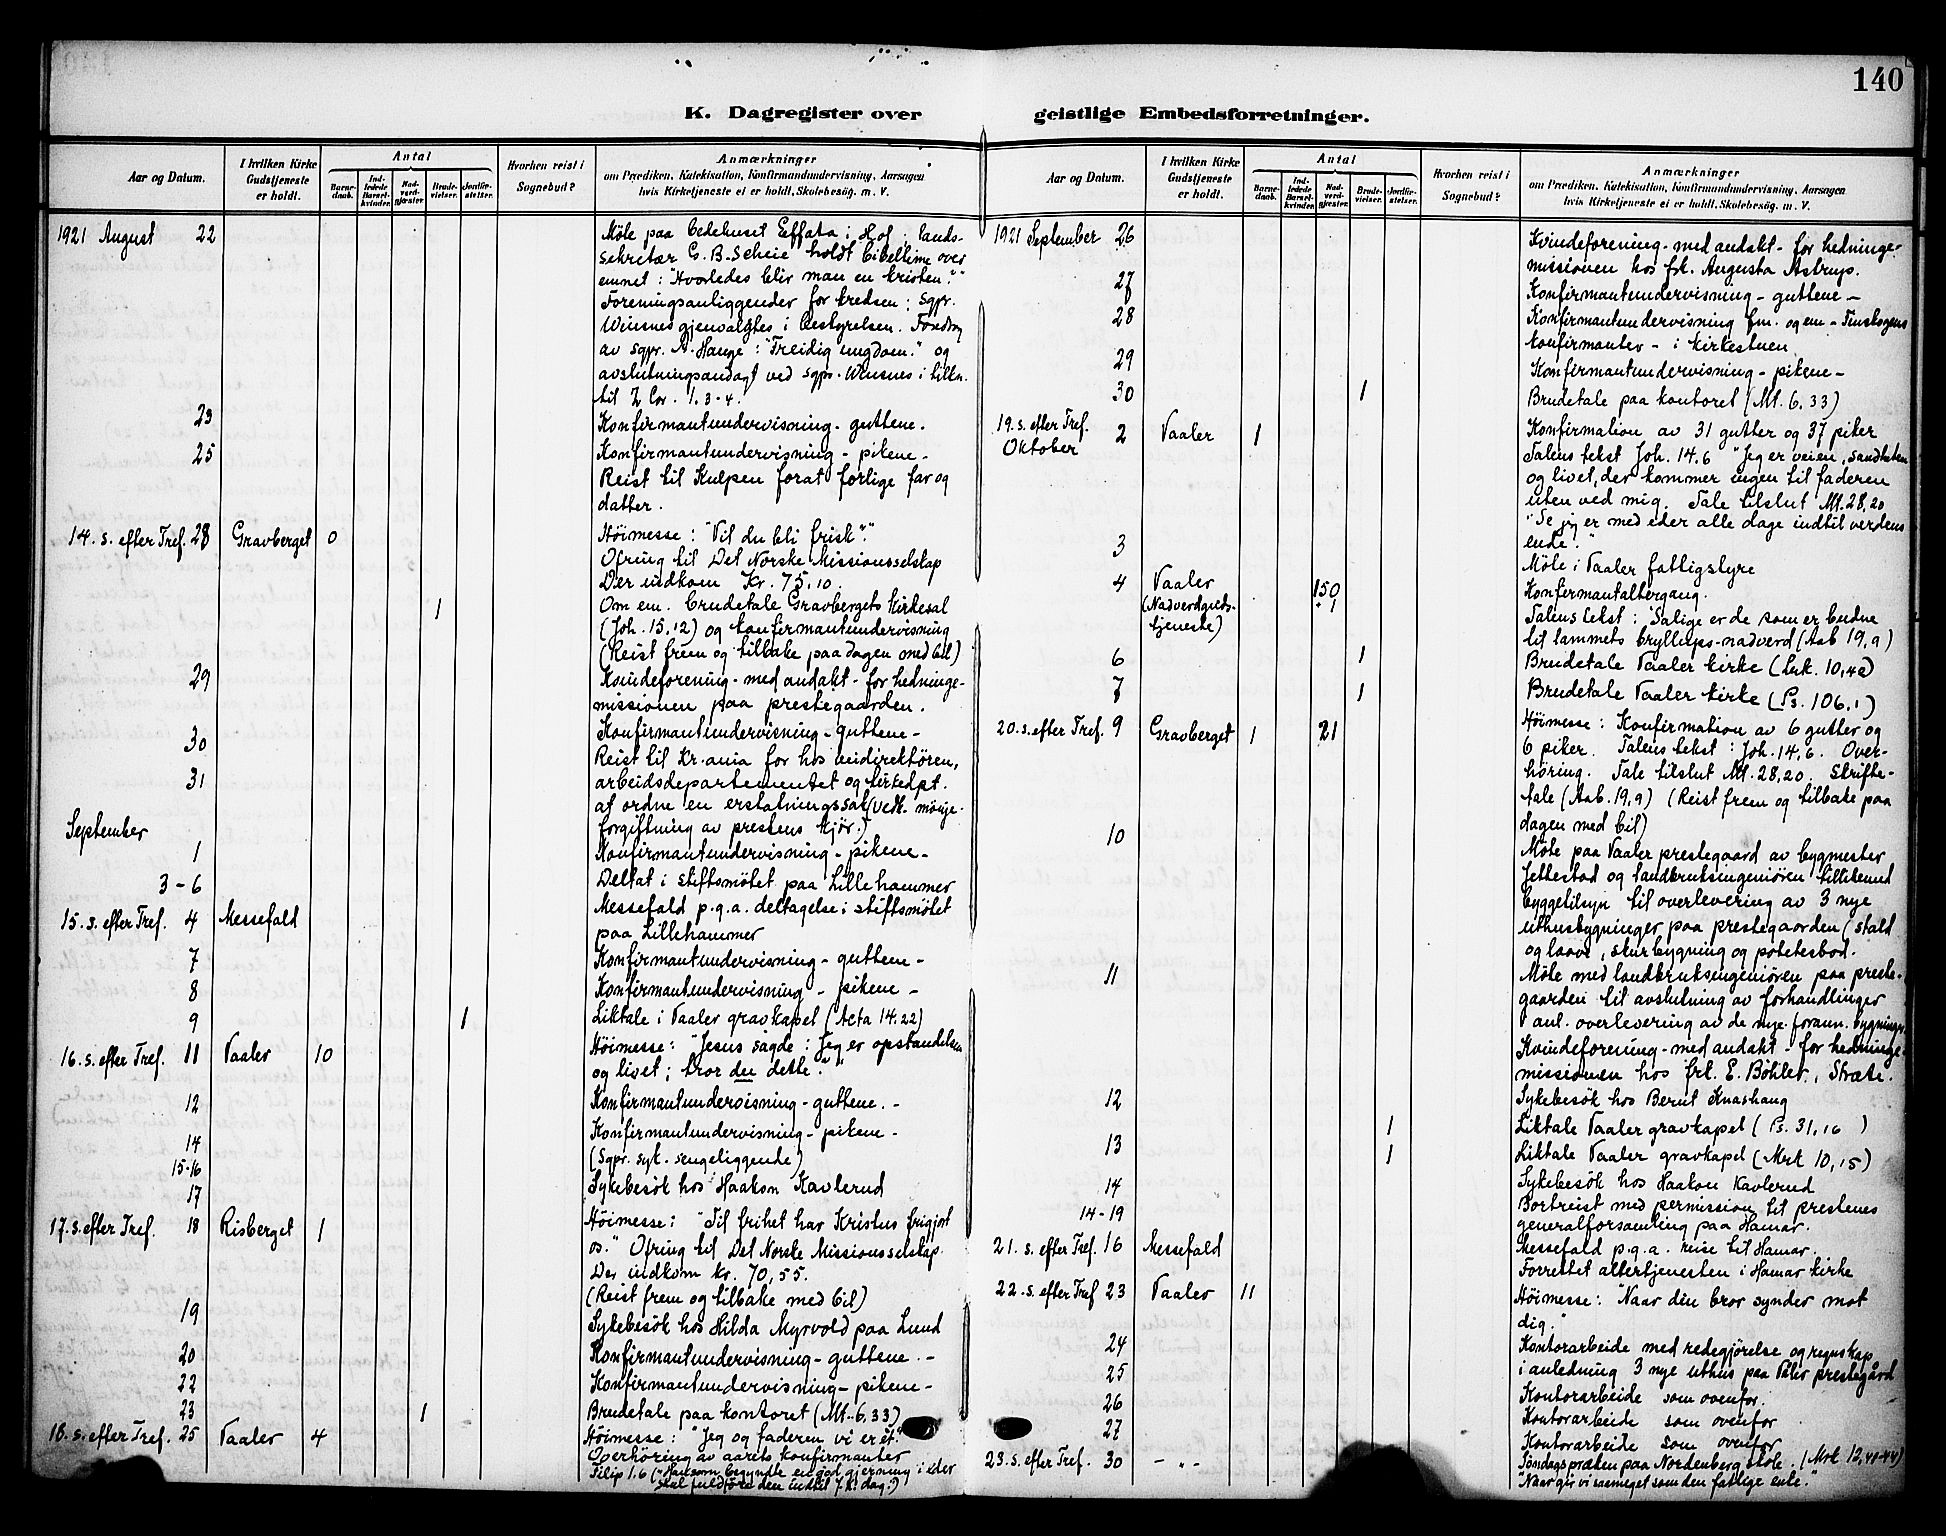 140
K. Dagregister over geistlige Embedsforretninger.
Aar og Datum. I hvilken Kirke Gudstjeneste er holdt. Antal Barne-daab. Ind-ledede Barsel-kvinder. Nad-verd-gjester. Brude-vielser. Jordfæ-stelser. Hvorhen reist i Sognebud?
Anmærkninger
om Prædiken, Katekisation, Konfirmandundervisning, Aarsagen
hvis Kirketjeneste ei er holdt, Skolebesög. m. V.
1921 August 22 Möte paa bedehuset Effata i Hof. Lands-
sekretær G. B. Scheie holdt bibeltime over
emnet: "Hvorledes blir man en kristen."
Foreningsanliggender for kredsen; sgpr.
Winsnes gjenvalgtes i bestyrelsen. Foredrag
av sgpr. A. Hauge: "Freidig ungdom." og
avslutningsandagt ved sgpr. Winsnes i tilkn.
til 2 Cor. 1.3-4.
23 Konfirmantundervisning - guttene.
25 Konfirmantundervisning - pikene -
Reist til Kulpen forat forlige far og
datter.
14. s. efter Tref. 28 Gravberget 0 Höimesse: "Vil du bli frisk"."
Ofring til Det Norske Missionsselskap
Der indkom Kr. 75,10.
1 Om em. brudetale Gravbergets kirkesal
(Joh. 15,12) og konfirmantundervisning
(Reist frem og tilbake paa dagen med bil)
29 Kvindeforening - med andakt - for hedninge-
missionen paa prestegaarden.
30 Konfirmantundervisning - guttene -
31 Reist til Kr.ania for hos veidirektören,
arbeidsdepartementet og kirkedpt.
af ordne en erstatningssak (vedk. mönje-
forgiftning av prestens kjör.)
September
1 Konfirmantundervisning - pikene -
3-6 Deltat i stiftsmötet paa Lillehammer
15. s. efter Tref. 4 Messefald Messefald p.g.a. deltagelse i stiftsmötet
paa Lillehammer
7 Konfirmantundervisning - guttene -
8 Konfirmantundervisning - pikene -
9 1 Liktale i Vaaler gravkapel (Acta 14.22)
16. s. efter Tref. 11 Vaaler 10 Höimesse: "Jesus sagde: Jeg er opstandelsen
og livet; tror du dette."
12 Konfirmantundervisning - guttene. -
14 Konfirmantundervisning - pikene -
15-16 (Sgpr. syk. sengeliggende)
17 Sykebesök hos Haakon Kavlerud
17. s. efter Tref. 18 Risberget 1 Höimesse: "Til frihet har Kristus frigjort
os." Ofring til Det Norske Missionsselskap.
Der indkom kr. 70,55.
(Reist frem og tilbake med bil)
19 Sykebesök hos Hilda Myrvold paa Lund
20 Konfirmantundervisning - guttene. -
22 Konfirmantundervisning - pikene -
23 1 Brudetale paa kontoret (Mt. 6,33)
18. s. efter Tref. 25 Vaaler 4 Höimesse: "Jeg og faderen vi er ét"
Overhöring av aarets konfirmanter
Filip 1.6 ("Han som begyndte en god gjerning i eder
skal fuldföre den indtil J.K. dag.")
Aar og Datum. I hvilken Kirke Gudstjeneste er holdt. Antal Barne-daab. Ind-ledede Barsel-kvinder. Nad-verd-gjester. Brude-vielser. Jordfæ-stelser. Hvorhen reist i Sognebud?
Anmærkninger
om Prædiken, Katekisation, Konfirmandundervisning, Aarsagen
hvis Kirketjeneste ei er holdt, Skolebesög. m. V.
1921 September 26 Kvindeforening - med andakt - for hedninge-
missionen hos frk. Augusta Astrup.
27 Konfirmantundervisning - guttene -
28 Konfirmantundervisning fm. og em - Finskogens
konfirmanter - i kirkestuen.
29 Konfirmantundervisning - pikene -
30 1 Brudetale paa kontoret (Mt. 6.33)
19. s. efter Tref. Oktober 2 Vaaler 1 Konfirmation av 31 gutter og 37 piker
Talens tekst Joh. 14.6 "Jeg er veien, sandheten
og livet, der kommer ingen til faderen
uten ved mig. Tale tilslut Mt. 28,20
"Se jeg er med eder alle dage indtil verdens
ende"."
3 Möte i Vaaler fattigstyre
4 Vaaler (Nadverdguds-tjeneste) 150 + 1 Konfirmantaltergang.
Talens tekst: "Salige er de som er budne
til Lammets bryllups-nadverd (Aab 19,9)
6 1 Brudetale Vaaler kirke (Luk. 10,42)
7 1 Brudetale Vaaler kirke (Ps. 106,1)
20. s. efter Tref. 9 Gravberget 1 21 Höimesse: Konfirmation av 6 gutter og
6 piker. Talens tekst: Joh. 14,6. Over-
höring. Tale tilslut Mt. 28,20. Skrifte-
tale (Aab. 19,9) (Reist frem og tilbake paa
dagen med bil)
10 Möte paa Vaaler prestegaard av bygmester
Jettestad og landbruksingeniören tillikemed
byggetilsyn til overlevering av 3 nye
uthusbygninger paa prestegaarden (stald
og laave, skurbygning og potetesbod.
11 Möte med landbruksingeniören paa preste-
gaarden til avslutning av forhandlinger
anl. overlevering av de nye forann. bygninger.
Kvindeforening - med andakt - for hedninge-
missionen hos frk. E. Böhler, Stræte.
12 Sykebesök hos Bernt Knashaug
1 Liktale Vaaler gravkapel (Ps. 31,16 )
13 1 Liktale Vaaler gravkapel (Mrk 10,15)
14 Sykebesök hos Haakon Kavlerud
14-19 Bortreist med permission til prestenes
generalforsamling paa Hamar.
21. s. efter Tref. 16 Messefald Messefald p.g.a. reise til Hamar.
Forrettet altertjenesten i Hamar kirke
22. s. efter Tref 23 Vaaler 11 Höimesse: "Naar din bror synder mot
dig."
24 Kontorarbeide med redegjörelse og regnskap
i anledning 3 nye uthus paa Våler prestegård
25 Kontorarbeide som ovenfor.
26 Kontorarbeide som ovenfor
27 Kontorarbeide som ovenfor
23. s. efter Tref. 30 - " - Söndagspræken paa Nordenberg skole. (Mrk 12,41-44)
"Naar gir vi saameget som den fattige enke".